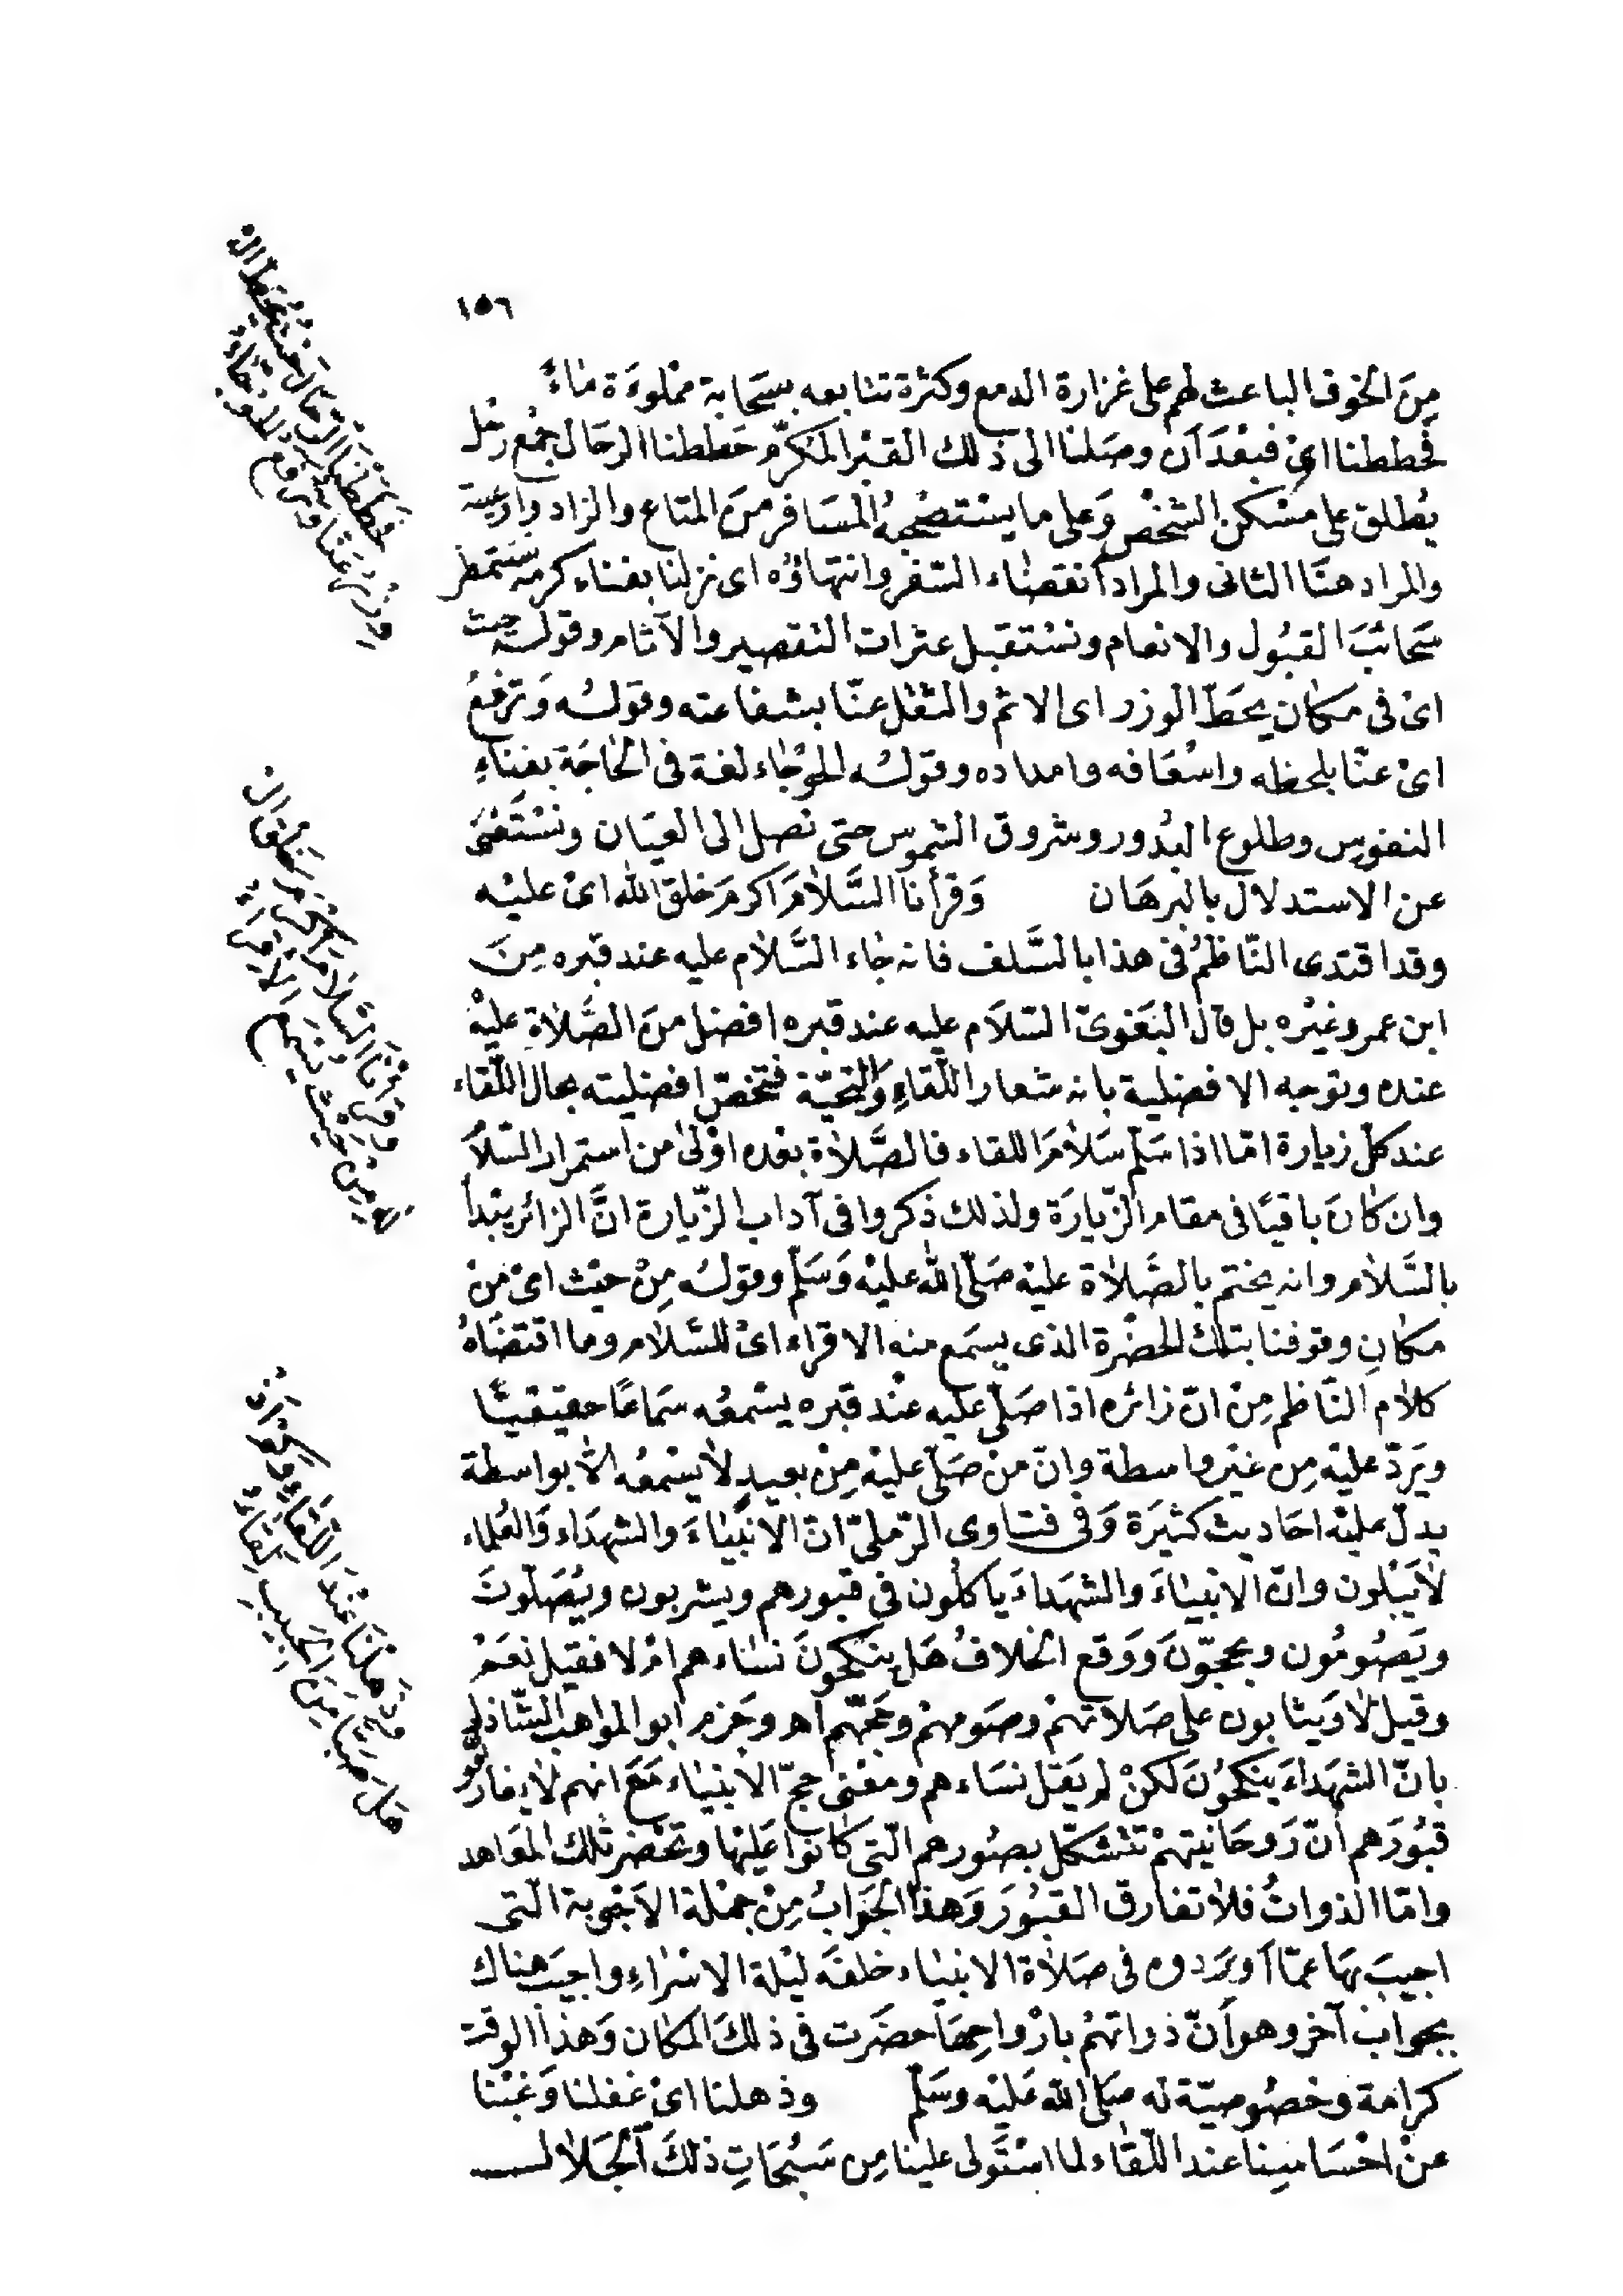 ١٥٦
مِنَ الخوف الباعث لهم على غزارة الدمع وكثرة تتابعه بسَحَابة مملوءَة مٰاءً
فحططنا اىْ فبعْدَ اَن وصَلنا الى ذلك القبْر المكرّم حَططنا الرحَال جمْع رَحْل
يُطلق على مسْكن الشخْص وَعلى ما يسْتصْحبهُ المسَافر منَ المتاع والزاد واوعية
والمراد هنَا الثانى والمراد انقضٰاء السّفر وانتهاؤه اى نزلنا بفناء كرمه نستمطر
سَحائبَ القبُول والانعام ونسْتقبل عثرات التقصير والآثام وقولُه حيث
اىْ فى مكان يحَطّ الوزر اى الاثم والثقل عنّا بشفاعته وقولُه وَترفعُ
اىْ عنّا بلحظه واسْعَافه وامداده وقولُه الحوْجٰاء لغة فى الحٰاجَة بفنَاءِ
النفوس وطلوع البُدور وشروق الشموس حتى نصل الى العيَان ونسْتَغْنىَ
عن الاستدلال بالبرهَان وَقرأنا السَّلاٰمَ اكرمَ خلق الله اىْ عليْه
وقد اقتدى النّاظمُ فى هذا بالسَّلف فانه جٰاء السَّلاٰم عليه عند قبره مِنَ
ابن عمر وغيْره بل قال البَغوىّ السّلاَم عليه عند قبره افضل منَ الصَّلاٰةِ عليْهِ
عنده وتوجه الافضلية بانه شعار اللّقاءِ وَالتحيّة فتختصّ افضليته بحال اللّقاء
عند كلّ زيارة امّا اذا سَلّم سَلاٰمَ اللقاء فالصَّلاٰة بعْده اوْلىٰ من استمرار السّلاَ
وان كٰانَ باقيًا فى مقام الزّيارَة ولذلك ذكروا فى آداب الزّيارة انَّ الزائر يبْدأ
بالسَّلاٰم وانه يختم بالصَّلاٰة عليْه صَلّى الله عليْه وَسَلّم وقولُه مِنْ حيْث اىْ منْ
مكانِ وقوفنا بتلك الحضْرة الذى يسمَع منه الاقراء اىْ للسَّلاٰم وما اقتضَاهُ
كلاٰم النَّاظم مِنْ انّ زائره اذا صَلّى عليه عنْد قبره يسْمعُه سَماعًا حقيقيًّا
ويَردّ عليْه مِن غيْر واسطة وانّ منْ صَلّى عليْه مِنْ بعيدٍ لاٰ يسْمعُه الاّ بواسطة
يدلّ عليْه احَاديث كثيرَة وَفى فتاوى الرّملىّ انّ الانبيٰاءَ والشهدَاء وَالعُلماء
لاٰ يَبْلون وانّ الانبيٰاءَ والشهَداءَ ياكلُون فى قبورهم ويشربون ويُصَلّونَ
ويَصُومُون ويحجّونَ وَوَقع الخلافُ هَل ينكحُونَ نسٰاءهم امْ لا فقيل نعَمْ
وقيل لاٰ وَيثابون على صَلاتهمْ وصَومهمْ وحَجّهم اهـ وجَزم ابو المواهب الشّاذلى
بانّ الشهَداءَ ينكحُونَ لكنْ لم يَقل نسَاءهم ومعْنى حجّ الانبيٰاء مَعَ انهم لاٰ يفارقون
قبُورَهم أنّ رَوحَانيتهمْ تتشكّل بصُورهم الّتى كانوا عَليْها وتحْضر تلك المعَاهد
وامّا الذواتُ فلاٰ تفارق القبُورَ وَهذا الجَوابُ مِنْ جمْلة الاَجْوبة الّتى
اجيبَ بهَا عمّا اَويَردوه فى صَلاٰة الانبيٰاء خلفَه ليْلة الاسْرٰاءِ واجيبَ هناك
بجواب آخر وهو اَنّ ذواتهمُ بارْواحِهَا حضَرت فى ذلكَ المكٰان وَهذا الوقت
كرامة وخصُوصيّة له صَلى الله عَليْه وسَلّم وذهلنا اىْ غفلنا وَغبْنا
عنْ احْسَاسِنا عند اللّقٰاء لما اسْتَولى علينا مِن سَبُحَاتِ ذلكَ الْجَلاٰل
فحَطَطْنَا الرِّحَالَ حَيْثُ يُحَطُّ الْ
وِزْرُ عَنَّا وَتُرْفَعُ الْحَوْجَاءُ
وَقَرَأْنَا السَّلَامَ اَكْرَمَ خَلْقِ الْ
لّٰهِ مِنْ حَيْثُ يُسْمَعُ الْاِقْرَاءُ
وَذَهِلْنَا عِنْدَ اللِّقَاءِ وَكَمْ اَذْ
هَلَ صَبًّا مِنَ الْحَبِيبِ لِقَاءُ